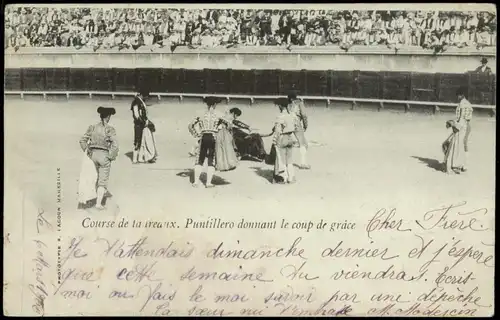 Course de taureaux. Puntillero donnant le coup de grâce
PHOTOTYPIE E. LACOUR, MARSEILLE
Cher Frère
Je t'attendais dimanche dernier et j'espère
que cette semaine tu viendras. Ecris-
moi ou fais le moi savoir par une dépêche
ta sœur qui t'embrasse M.